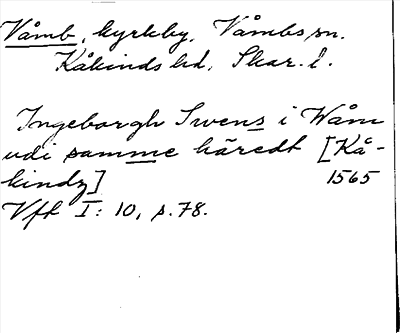 Våmb, kyrkby, Våmbs sn.
Kåkinds hd, Skar. l.
Ingeborgh Swens i Wåm
udi samme häredt [Kå-
kindz] 1565
Vft I: 10, s. 78.